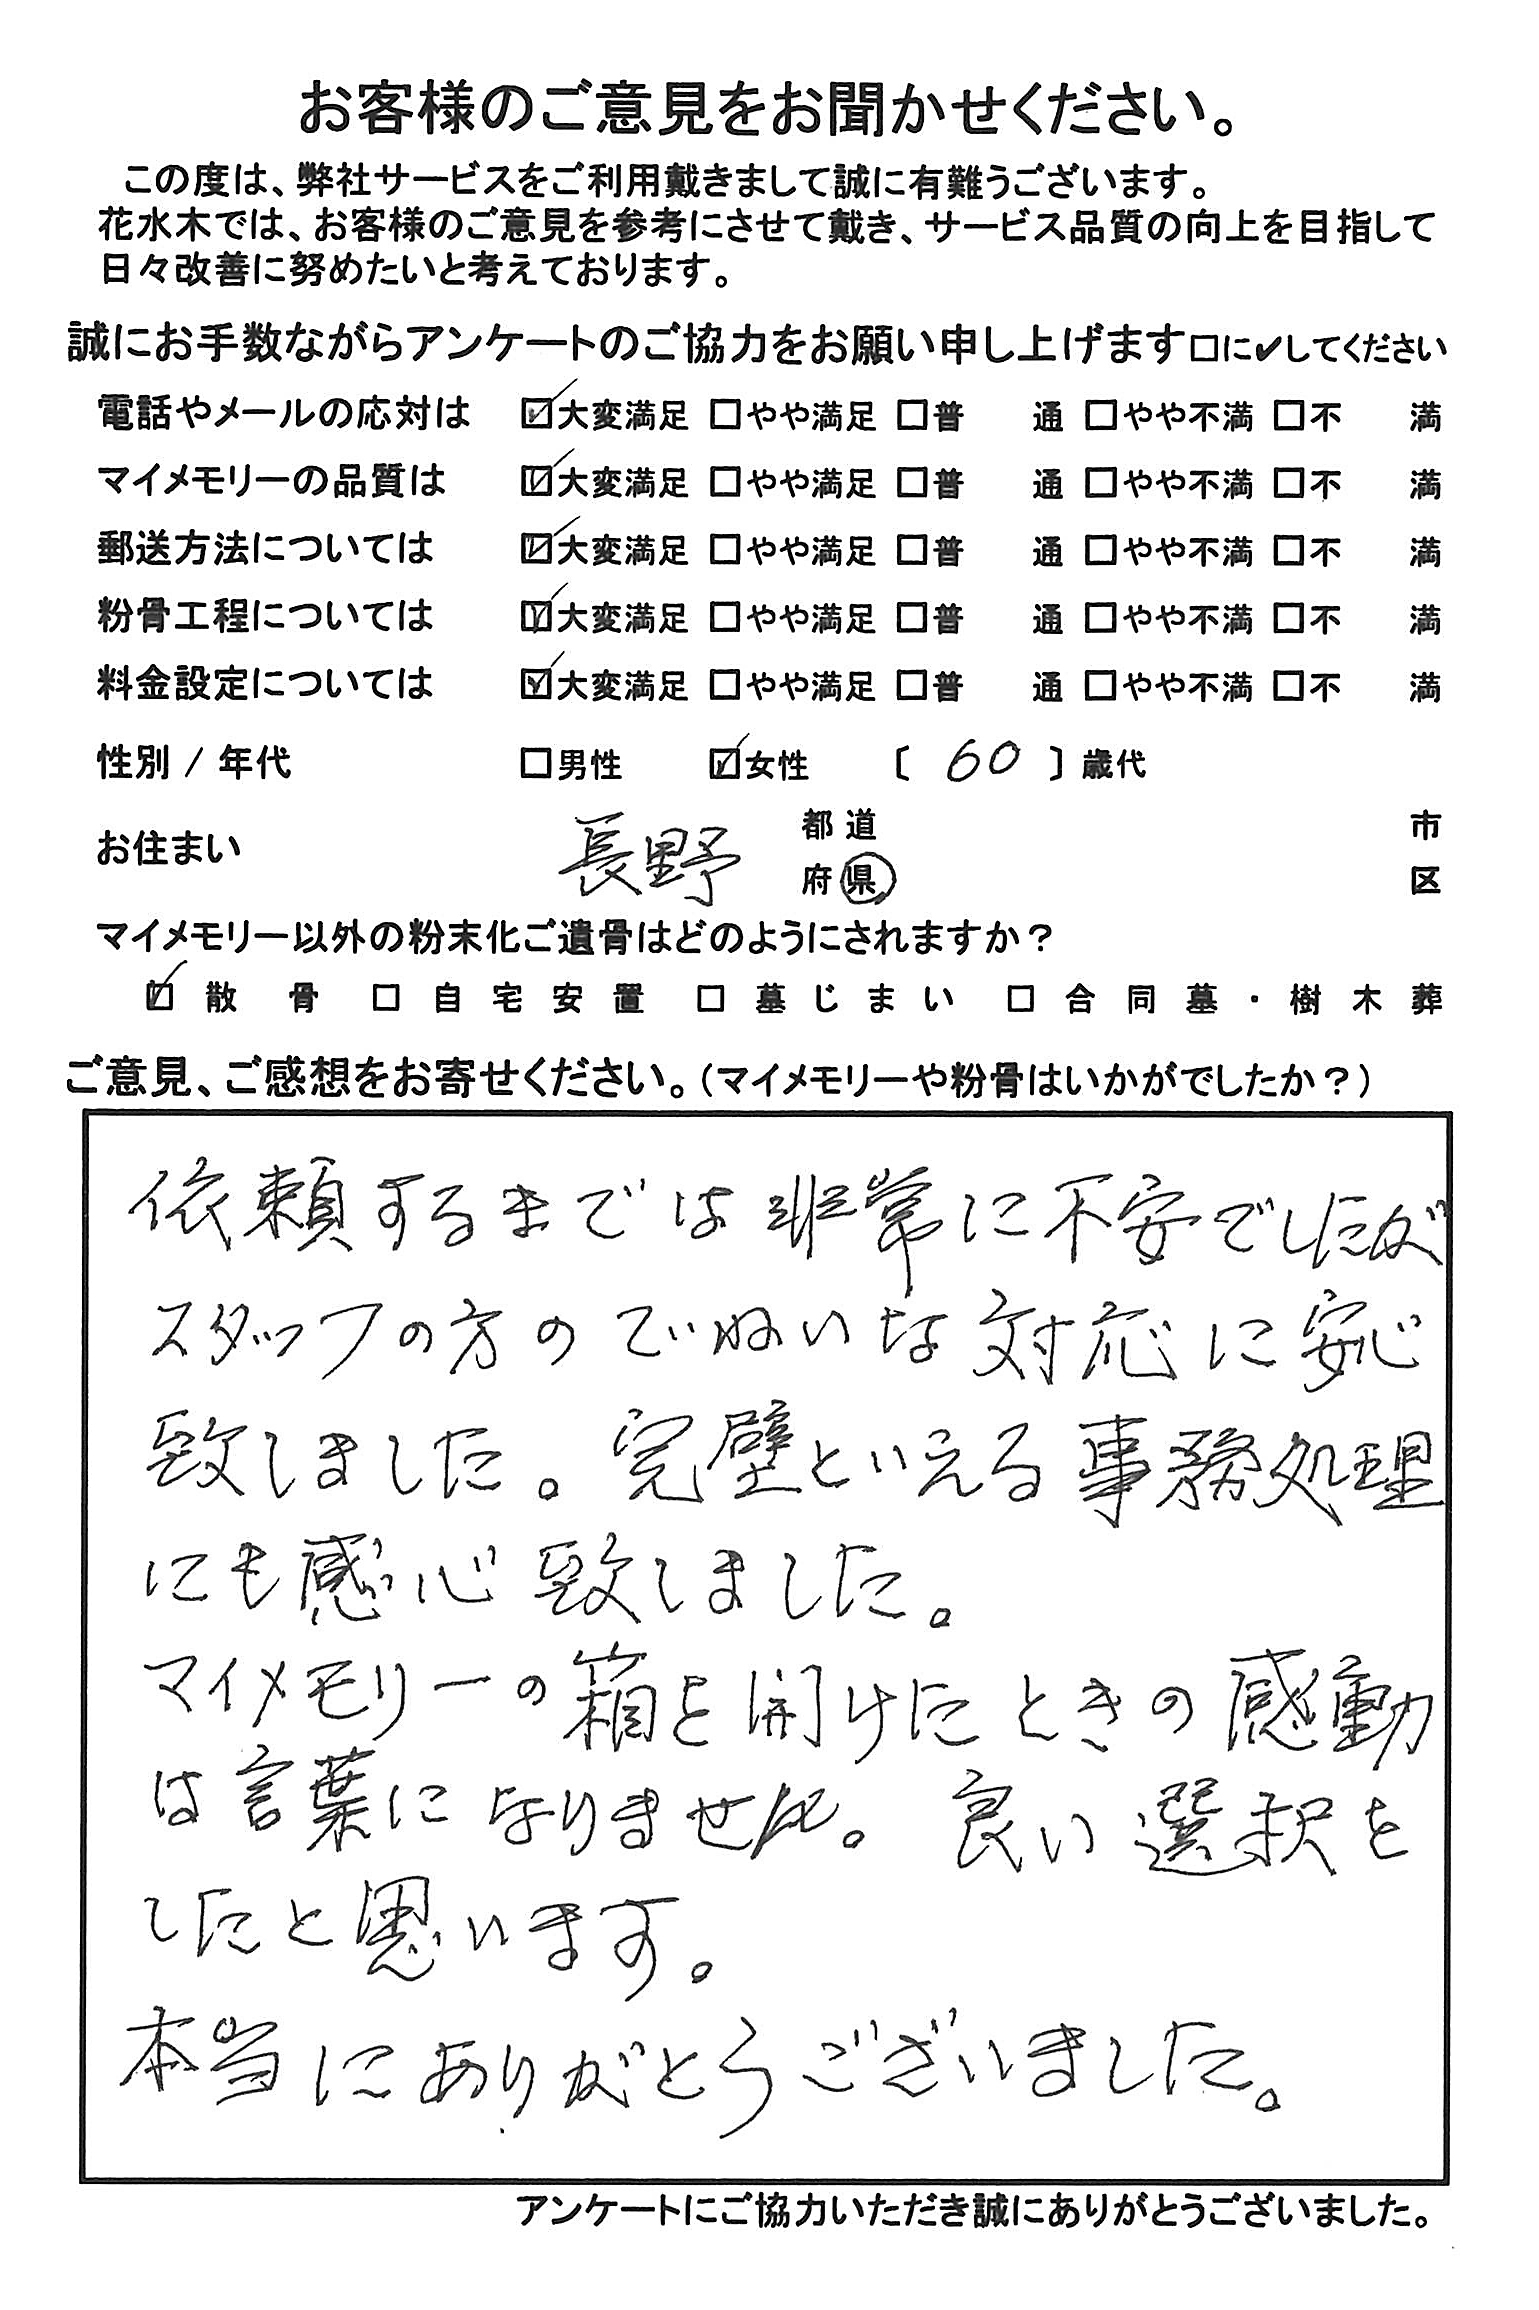 お客様のご意見をお聞かせください。
この度は、弊社サービスをご利用戴きまして誠に有難うございます。
花水木では、お客様のご意見を参考にさせて戴き、サービス品質の向上を目指して
日々改善に努めたいと考えております。
誠にお手数ながらアンケートのご協力をお願い申し上げます□に✔してください
電話やメールの応対は ☑大変満足 □やや満足 □普 通 □やや不満 □不 満
マイメモリーの品質は ☑大変満足 □やや満足 □普 通 □やや不満 □不 満
郵送方法については ☑大変満足 □やや満足 □普 通 □やや不満 □不 満
粉骨工程については ☑大変満足 □やや満足 □普 通 □やや不満 □不 満
料金設定については ☑大変満足 □やや満足 □普 通 □やや不満 □不 満
性別 / 年代 □男性 ☑女性 〔 60 〕歳代
お住まい 長野 都道府県 市区
マイメモリー以外の粉末化ご遺骨はどのようにされますか？
☑ 散骨 □ 自宅安置 □ 墓じまい □ 合同墓・樹木葬
ご意見、ご感想をお寄せください。（マイメモリーや粉骨はいかがでしたか？）
依頼するまでは非常に不安でしたが
スタッフの方のていねいな対応に安心
致しました。完璧といえる事務処理
にも感心致しました。
マイメモリーの箱を開けたときの感動
は言葉になりません。良い選択を
したと思います。
本当にありがとうございました。
アンケートにご協力いただき誠にありがとうございました。